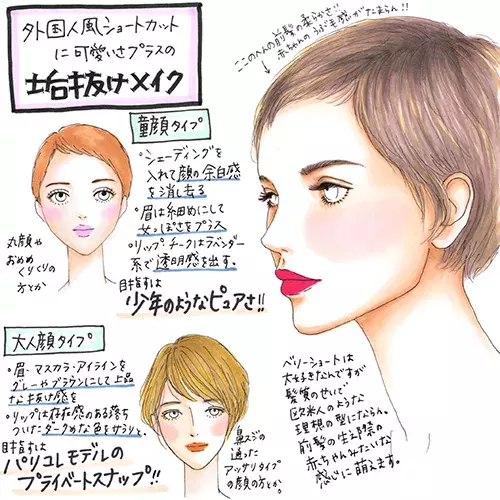 外国人風ショートカット
に可愛いさプラスの
垢抜けメイク
ここのへんの前髪の柔らかさ!
赤ちゃんのうぶ毛感がたまらん!!
童顔タイプ
・シェーディングを
入れて顔の余白感
を消し去る
・眉は細めにして
女っぽさをプラス
・リップ、チークはラベンダー
系で透明感を出す。
目指すは
少年のようなピュアさ!!
丸顔や
おめめ
くりくりの
方とか
大人顔タイプ
・眉・マスカラ・アイラインを
グレーやブラウンにして上品
な抜け感を
・リップは存在感のある落ち
ついたダークめな色をサラリと。
目指すは
パリコレモデルの
プライベートスナップ!!
鼻スジの
通った
アッサリタイプ
の顔の方とか。
ベリーショートは
大好きなんですが
髪質のせいで
欧米人のような
理想の型にならん。
前髪の生え際の
赤ちゃんみたいな
感じに萌えます。